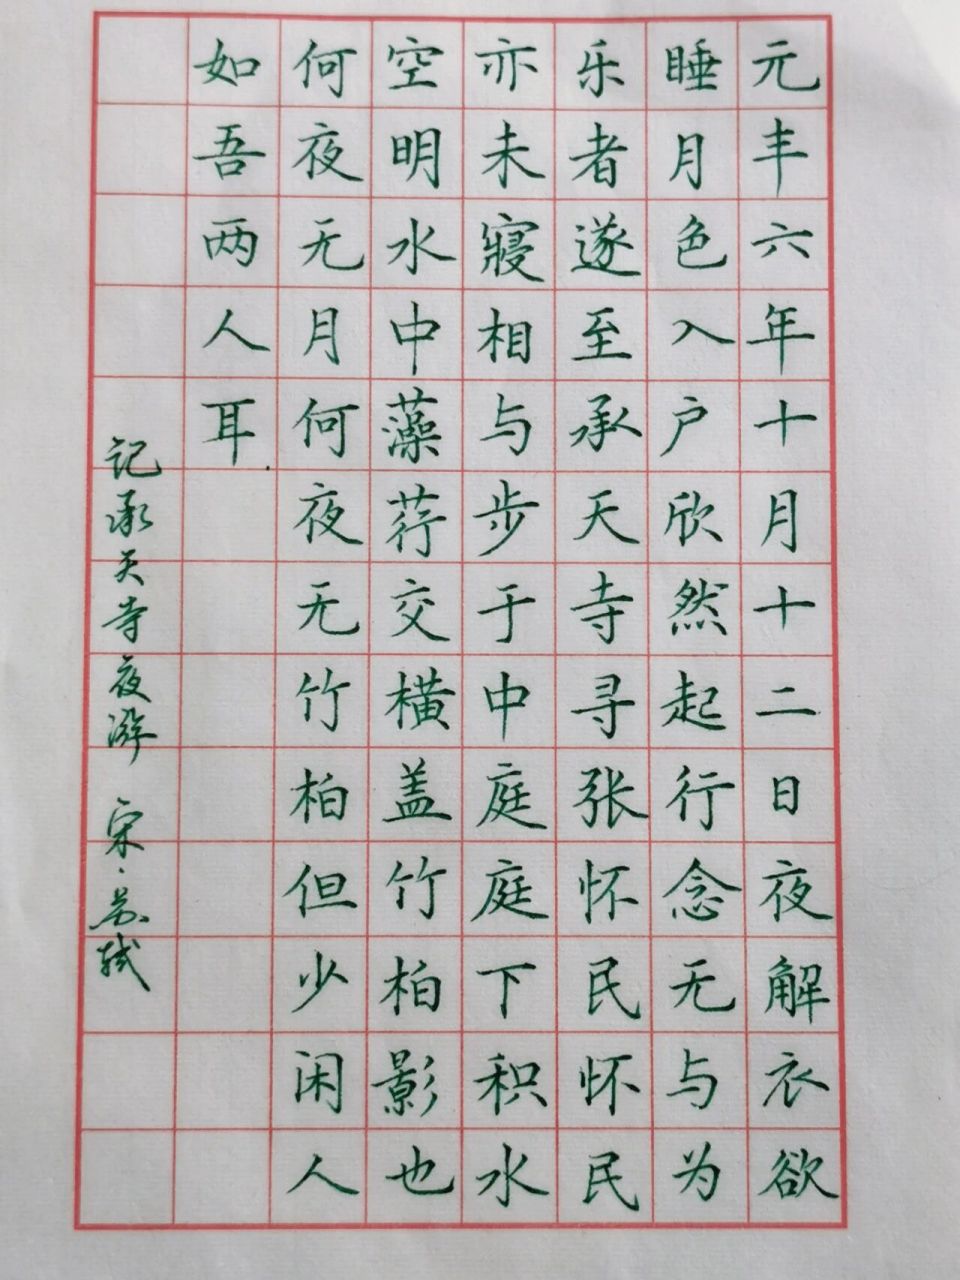 元丰六年十月十二日夜解衣欲
睡月色入户欣然起行念无与为
乐者遂至承天寺寻张怀民怀民
亦未寢相与步于中庭庭下积水
空明水中藻荇交横盖竹柏影也
何夜无月何夜无竹柏但少闲人
如吾两人耳
记承天寺夜游 宋·苏轼